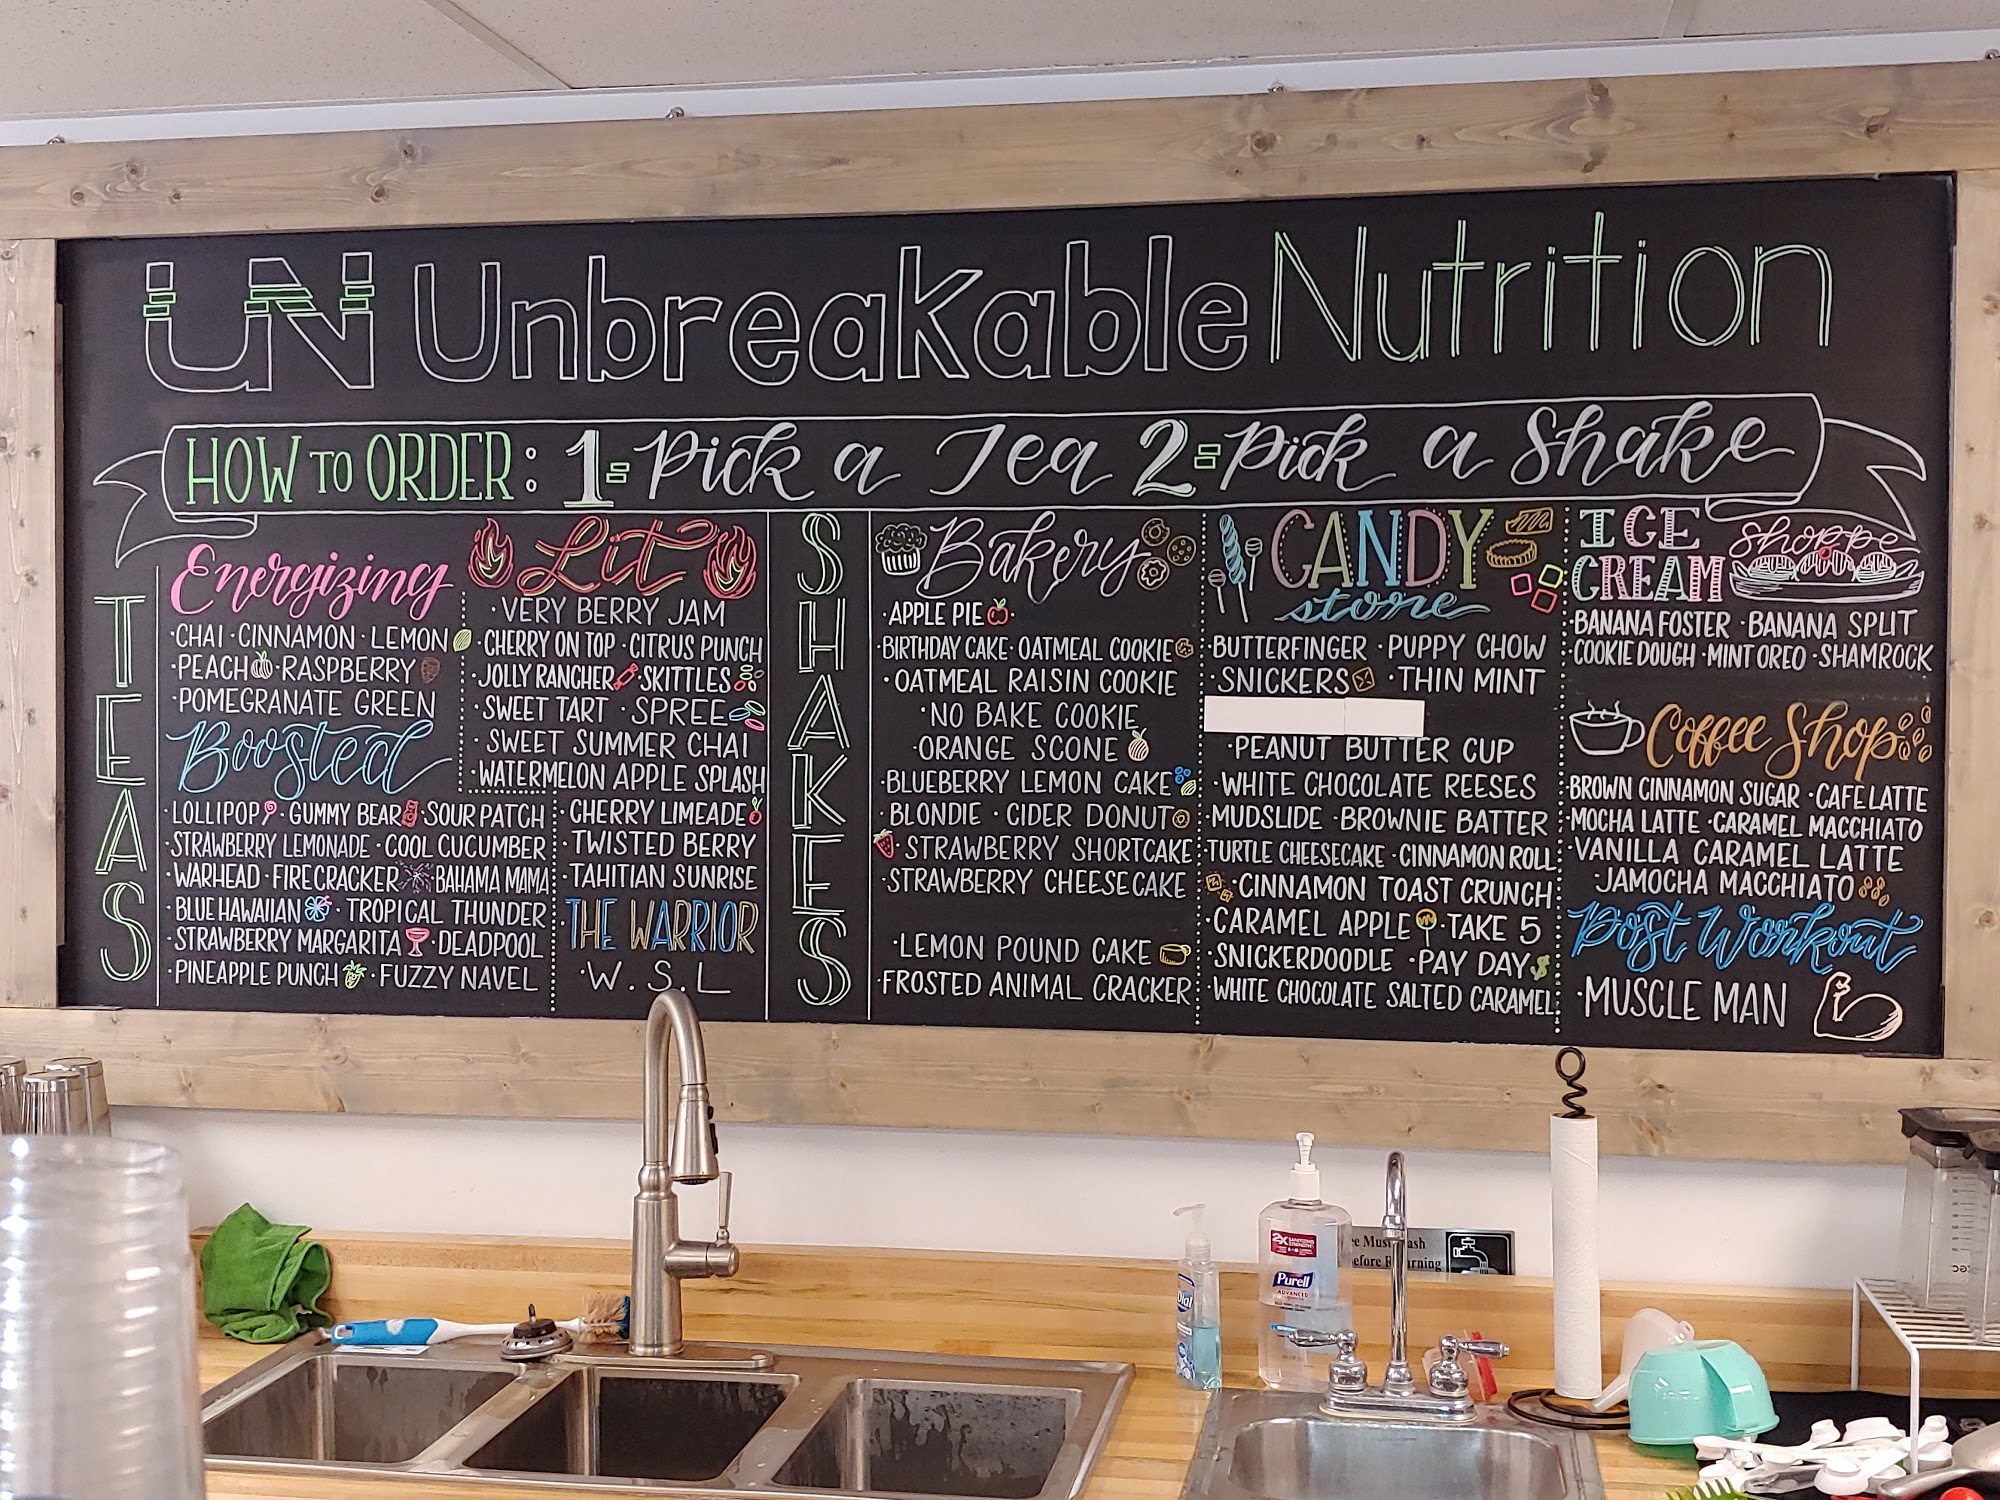 UN Unbreakable Nutrition
HOW TO ORDER: 1= Pick a Tea 2= Pick a Shake
TEAS
Energizing
·CHAI ·CINNAMON ·LEMON
·PEACH ·RASPBERRY
·POMEGRANATE GREEN
Boosted
·LOLLIPOP ·GUMMY BEAR ·SOUR PATCH
·STRAWBERRY LEMONADE ·COOL CUCUMBER
·WARHEAD ·FIRECRACKER ·BAHAMA MAMA
·BLUE HAWAIIAN ·TROPICAL THUNDER
·STRAWBERRY MARGARITA ·DEADPOOL
·PINEAPPLE PUNCH ·FUZZY NAVEL
Lit
·VERY BERRY JAM
·CHERRY ON TOP ·CITRUS PUNCH
·JOLLY RANCHER ·SKITTLES
·SWEET TART ·SPREE
·SWEET SUMMER CHAI
·WATERMELON APPLE SPLASH
·CHERRY LIMEADE
·TWISTED BERRY
·TAHITIAN SUNRISE
THE WARRIOR
·W.S.L
SHAKES
Bakery
·APPLE PIE·
·BIRTHDAY CAKE ·OATMEAL COOKIE
·OATMEAL RAISIN COOKIE
·NO BAKE COOKIE
·ORANGE SCONE
·BLUEBERRY LEMON CAKE
·BLONDIE ·CIDER DONUT
·STRAWBERRY SHORTCAKE
·STRAWBERRY CHEESECAKE
·LEMON POUND CAKE
·FROSTED ANIMAL CRACKER
CANDY
store
·BUTTERFINGER ·PUPPY CHOW
·SNICKERS ·THIN MINT
·PEANUT BUTTER CUP
·WHITE CHOCOLATE REESES
·MUDSLIDE ·BROWNIE BATTER
·TURTLE CHEESECAKE ·CINNAMON ROLL
·CINNAMON TOAST CRUNCH
·CARAMEL APPLE ·TAKE 5
·SNICKERDOODLE ·PAY DAY $
·WHITE CHOCOLATE SALTED CARAMEL
ICE
CREAM shoppe
·BANANA FOSTER ·BANANA SPLIT
COOKIE DOUGH ·MINT OREO ·SHAMROCK
Coffee Shop
·BROWN CINNAMON SUGAR ·CAFE LATTE
·MOCHA LATTE ·CARAMEL MACCHIATO
·VANILLA CARAMEL LATTE
·JAMOCHA MACCHIATO
Post Workout
·MUSCLE MAN
Dial
2X
Purell
ADVANCED